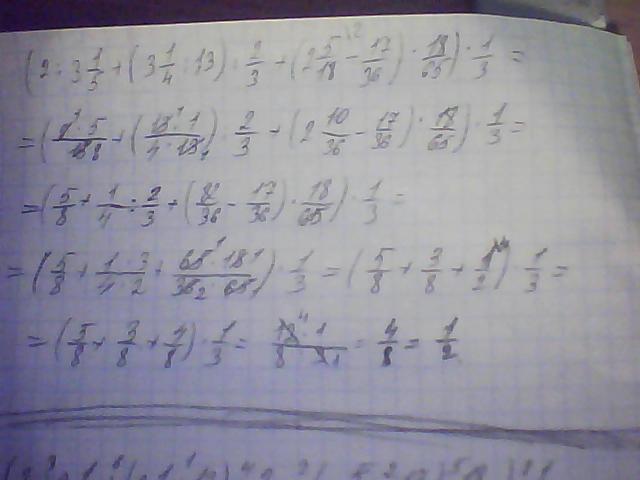 (2 : 3 1/5 + (3 1/4 : 13) : 2/3 + (2 5/18 - 17/36) · 18/65) · 1/3 =
= ( · 5/ 8 + (13 · 1/4 · 13) : 2/3 + (2 10/36 - 17/36) · 18/65) · 1/3 =
= (5/8 + 1/4 : 2/3 + (82/36 - 17/36) · 18/65) · 1/3 =
= (5/8 + 1 · 3/4 · 2 + 65 · 18/36 · 65) · 1/3 = (5/8 + 3/8 + 1/2) · 1/3 =
= (5/8 + 3/8 + 4/8) · 1/3 = 12 · 1/8 · 3 = 4/8 = 1/2